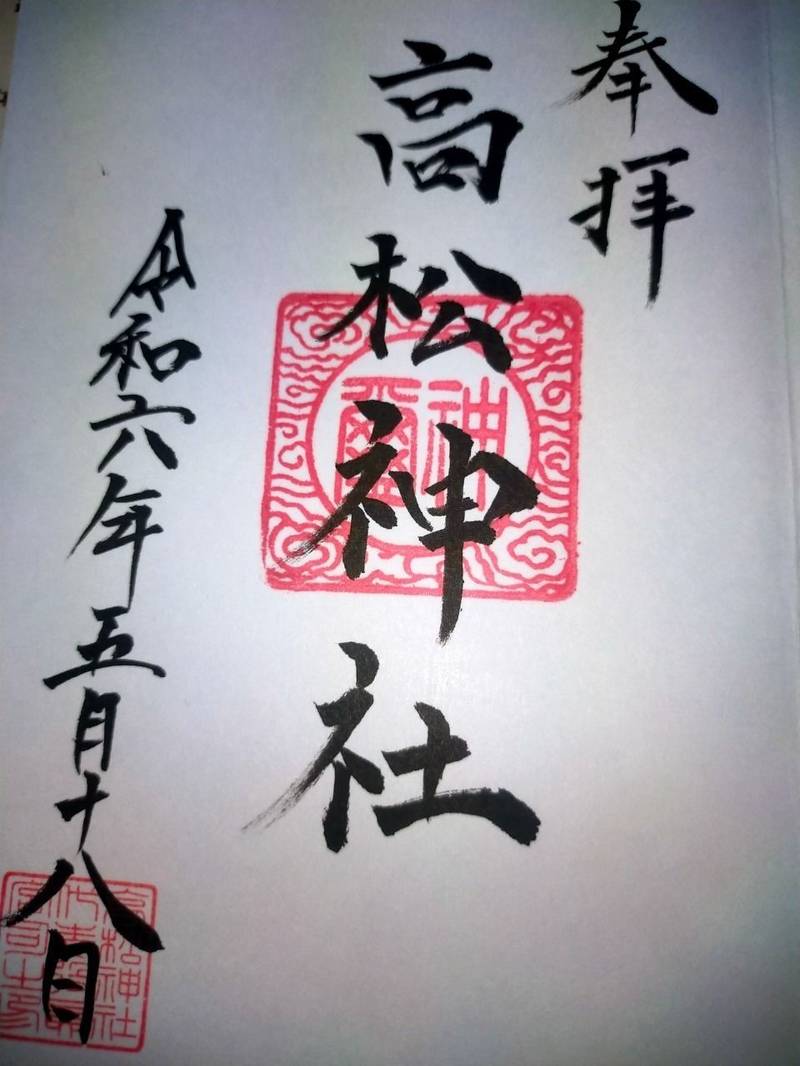 奉拝
高松神社
神璽
令和六年五月十八日
高松神社